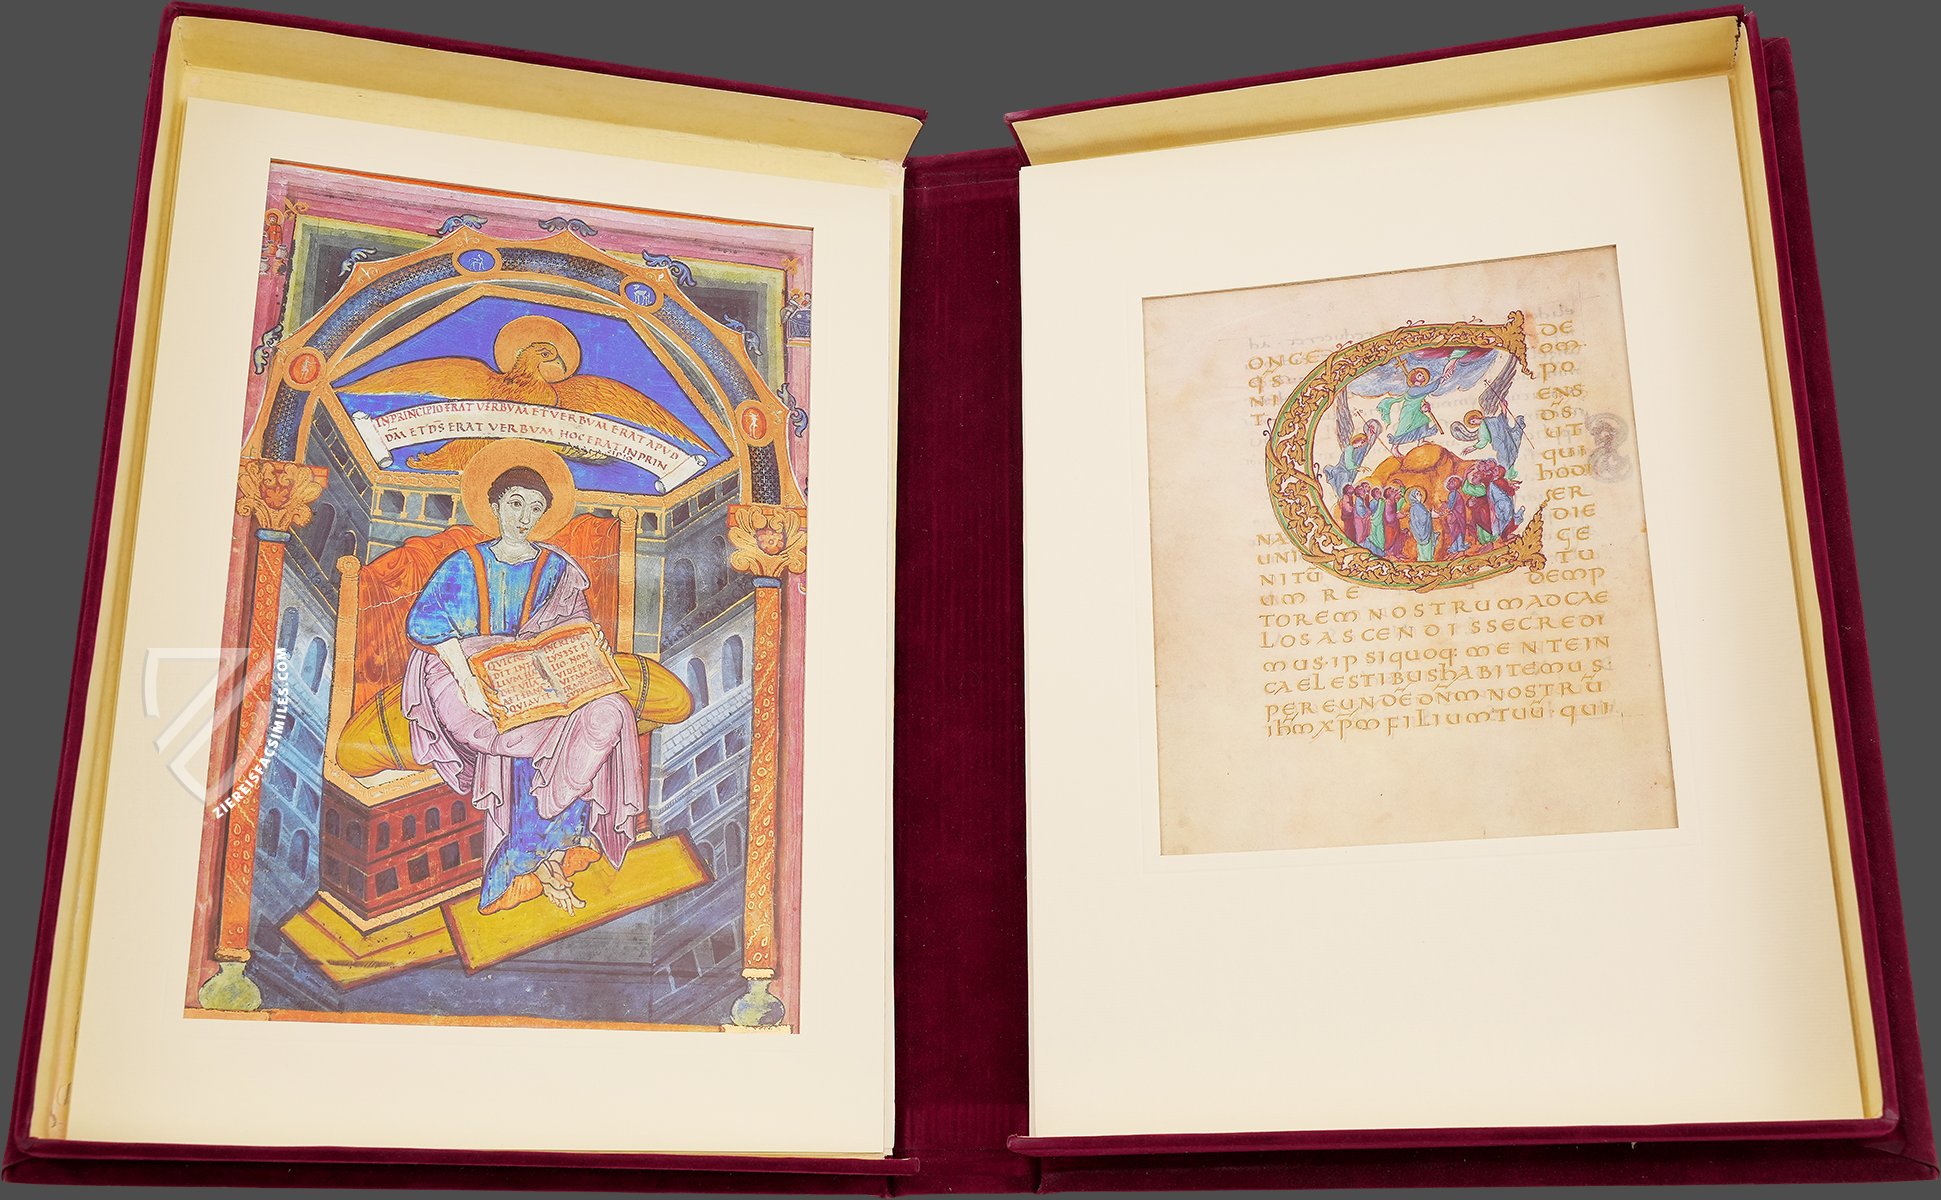 IN PRINCIPIO ERAT VERBVM ET VERBVM ERAT APVD
DM̄ ET DS̄ ERAT VERBVM HOC ERAT IN PRIN
CIPIO
ZIEREISFACSIMILES.COM
ONCE DE
QS OM
NI PO
T ENS
DS
UT
QUI
hODI
ER
NA DIE
UNI GE
NITŪ TU
UM RE DEMP
TOREM NOSTRUM AD CAE
LOS ASCENDISSE CREDI
MUS· IPSI QUOQ: MENTE IN
CAELESTIBUS hABITEMUS:
PER EUNDĒ DN̄M NOSTRŪ
IhM̄ XPM̄ FILIUM TUŪ· QUI